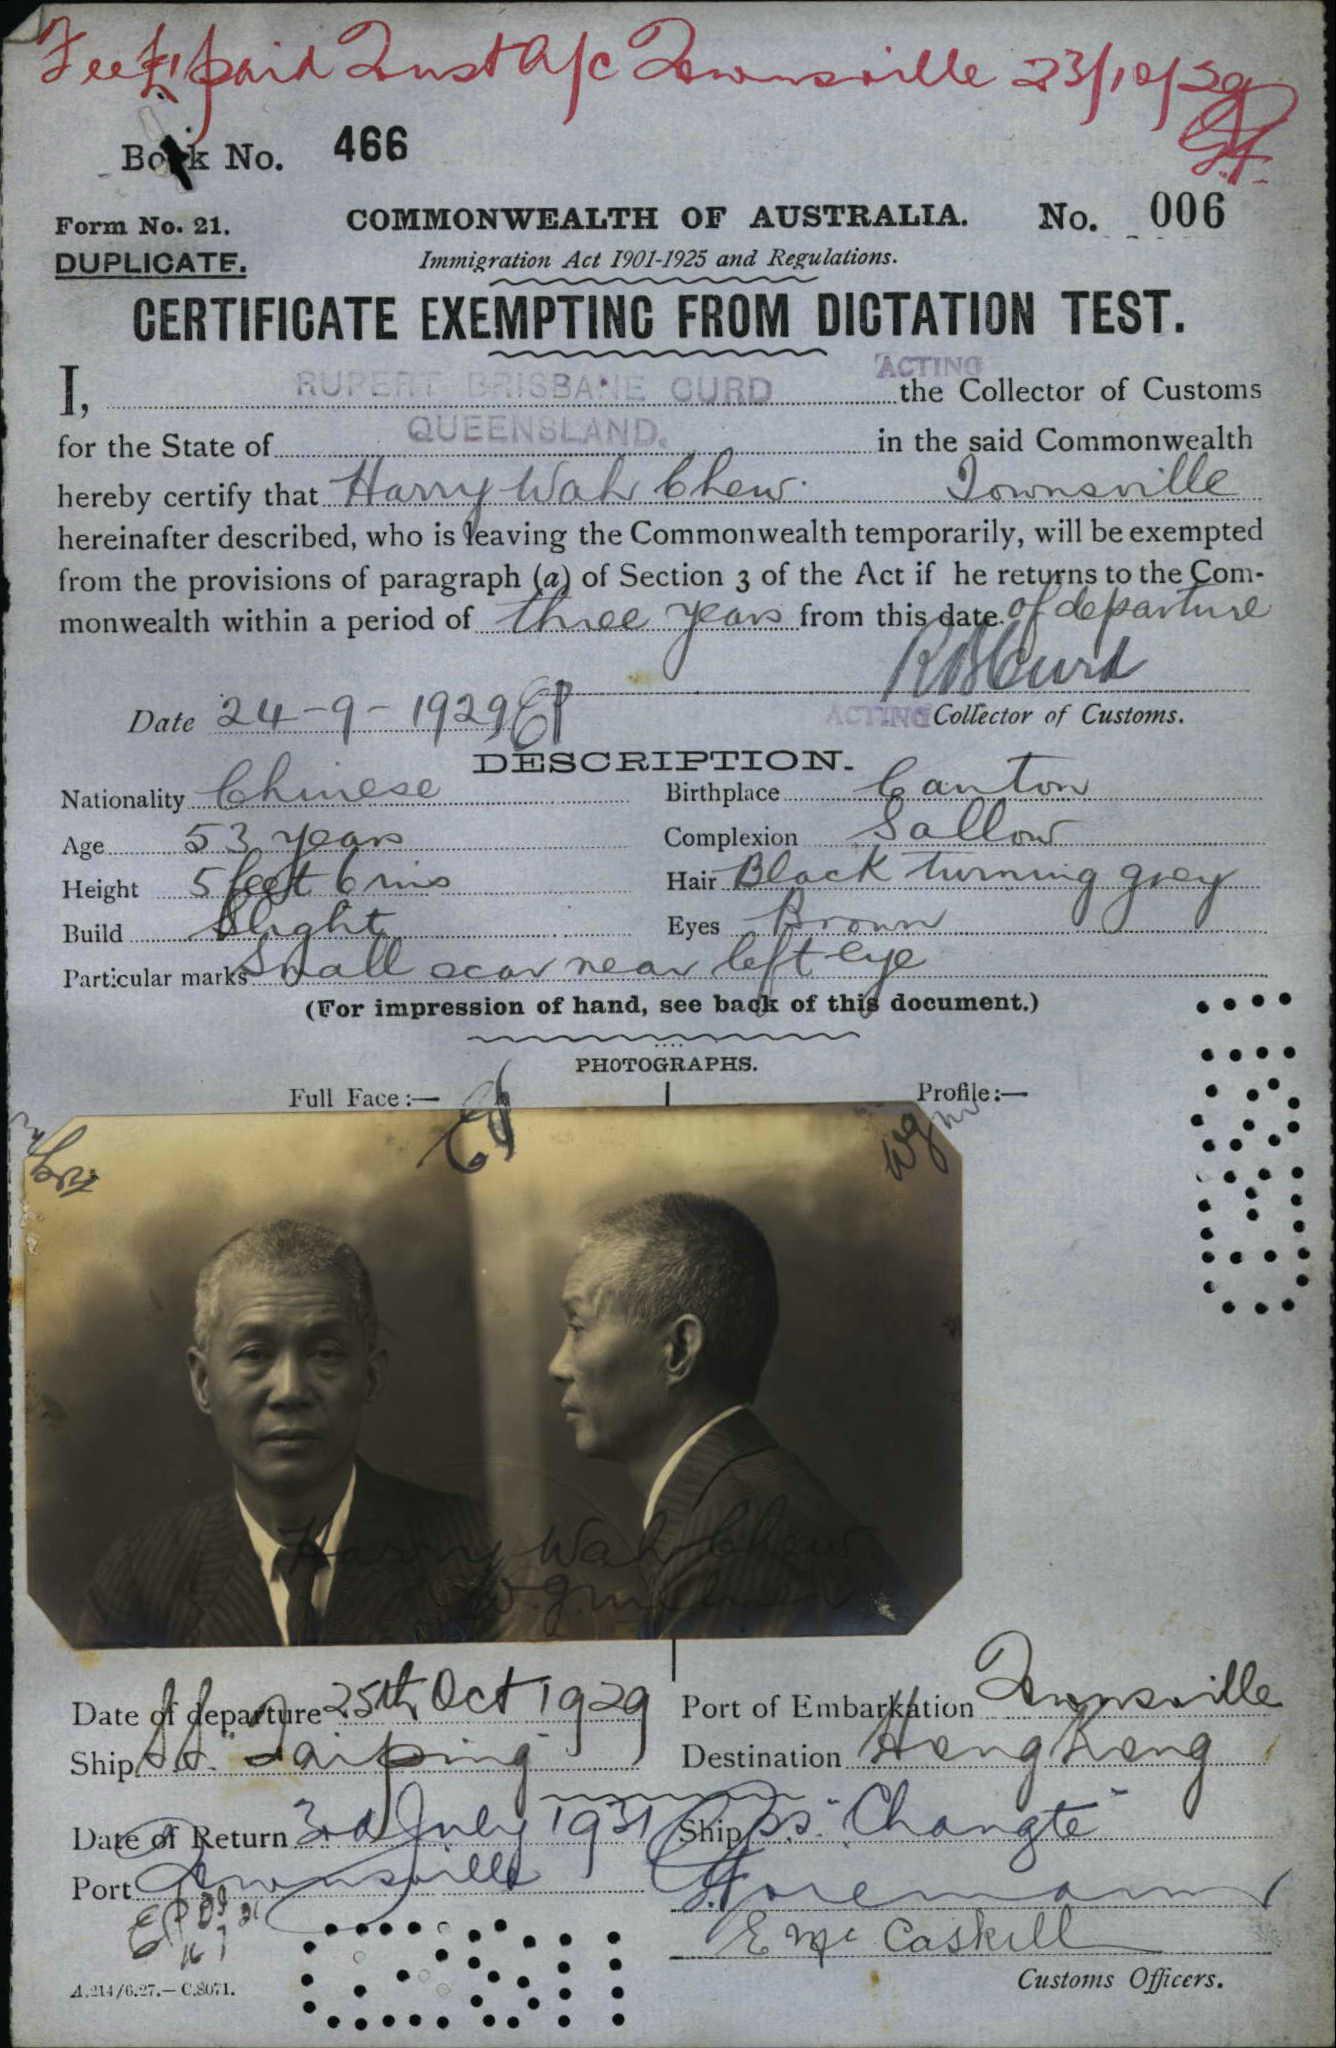 Fee £1 paid Trust A/c Townsville 23/10/29
Book No. 466
Form No. 21. COMMONWEALTH OF AUSTRALIA. No. 006
DUPLICATE. Immigration Act 1901-1925 and Regulations.
CERTIFICATE EXEMPTING FROM DICTATION TEST.
ACTING
I, RUPERT BRISBANE CURD the Collector of Customs
for the State of QUEENSLAND. in the said Commonwealth
hereby certify that Harry Wah Chew. Townsville
hereinafter described, who is leaving the Commonwealth temporarily, will be exempted
from the provisions of paragraph (a) of Section 3 of the Act if he returns to the Com-
monwealth within a period of three years from this date of departure
RBCurd
Date 24-9-1929 EP ACTING Collector of Customs.
DESCRIPTION.
Nationality Chinese Birthplace Canton
Age 53 years Complexion Sallow
Height 5 feet 6 ins Hair Black turning grey
Build Slight Eyes Brown
Particular marks Small scar near left eye
(For impression of hand, see back of this document.)
PHOTOGRAPHS.
Full Face:— Profile:—
Harry Wah Chew
Date of departure 25th Oct 1929 Port of Embarkation Townsville
Ship s.s. "Taiping" Destination Hong Kong
Date of Return 3rd July 1931 Ship s.s. "Changte"
Port Townsville
E Mc Caskill
A.214/6.27.—C.8071. Customs Officers.